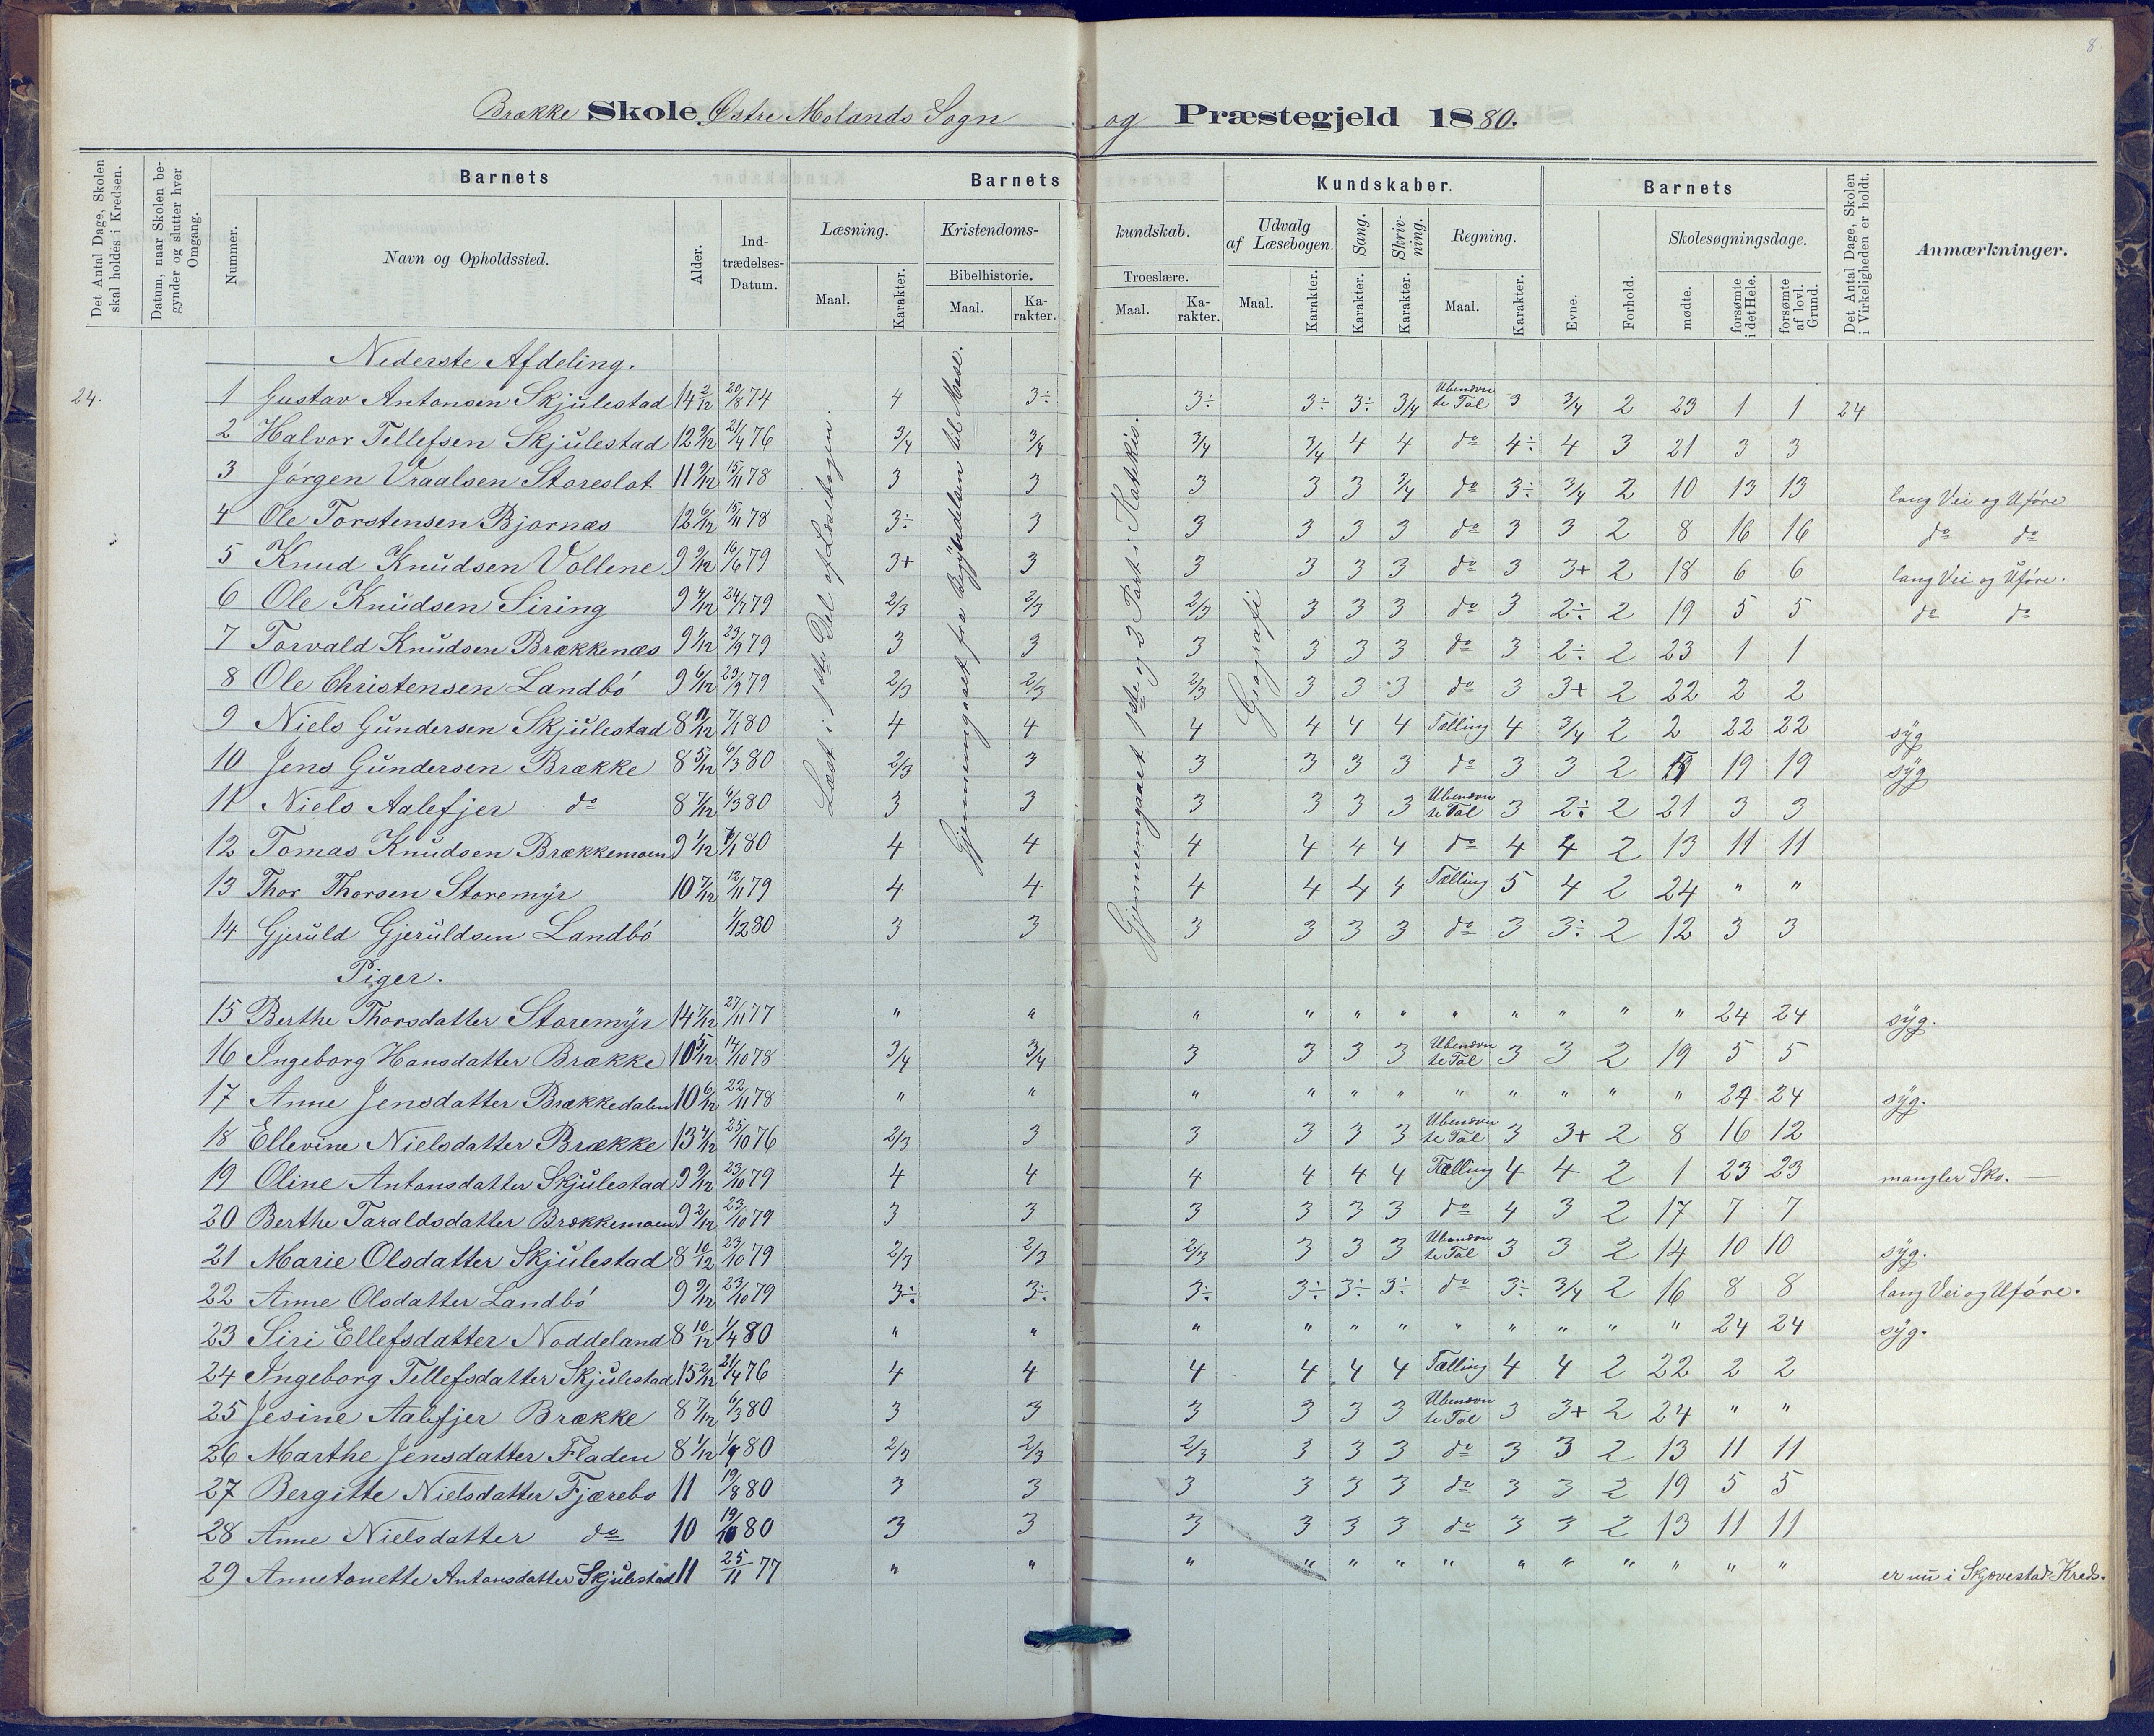 8.
Brække Skole Østre Molands Sogn og Præstegjeld 1880.
Det Antal Dage, Skolen skal holdes i Kredsen.
Datum, naar Skolen begynder og slutter hver Omgang.
Barnets
Nummer.
Navn og Opholdssted.
Alder.
Indtrædelses-Datum.
Barnets Kundskaber.
Læsning. Maal. Karakter.
Kristendomskundskab. Bibelhistorie. Maal. Karakter. Troeslære. Maal. Karakter.
Udvalg af Læsebogen. Maal. Karakter.
Sang. Karakter.
Skrivning. Karakter.
Regning. Maal. Karakter.
Barnets
Evne. Forhold.
Skolesøgningsdage. mødte. forsømte i det Hele. forsømte af lovl. Grund.
Det Antal Dage, Skolen i Virkeligheden er holdt.
Anmærkninger.
Læst i 1ste Del af Læsebogen.
Gjennemgaaet fra Begyndelsen til Mose.
Gjennemgaaet 1ste og 2 Part i Katekis.
Geografi
Nederste Afdeling.
24. 1 Gustav Antonsen Skjulestad 14 2/12 20/8 74 4 3÷ 3÷ 3÷ 3÷ 3/4 Ubenævnte Tal 3 3/4 2 23 1 1 24
2 Halvor Tellefsen Skjulestad 12 9/12 21/4 76 3/4 3/4 3/4 3/4 4 4 do 4÷ 4 3 21 3 3
3 Jørgen Vraalsen Storeslot 11 9/12 15/11 78 3 3 3 3 3 3/4 do 3÷ 3/4 2 10 13 13 lang Vei og Uføre
4 Ole Torstensen Bjornæs 12 6/12 15/11 78 3÷ 3 3 3 3 3 do 3 3 2 8 16 16 do do
5 Knud Knudsen Vollene 9 9/12 16/6 79 3+ 3 3 3 3 3 do 3 3+ 2 18 6 6 lang Vei og Uføre.
6 Ole Knudsen Siring 9 4/12 24/7 79 2/3 2/3 2/3 3 3 3 do 3 2÷ 2 19 5 5 do do
7 Torvald Knudsen Brækkenæs 9 1/12 23/9 79 3 3 3 3 3 3 do 3 2÷ 2 23 1 1
8 Ole Christensen Landbö 9 6/12 23/9 79 2/3 2/3 2/3 3 3 3 do 3 3+ 2 22 2 2
9 Niels Gundersen Skjulestad 8 11/12 7/1 80 4 4 4 4 4 4 Tælling 4 3/4 2 2 22 22 syg
10 Jens Gundersen Brække 8 5/12 6/3 80 2/3 3 3 3 3 3 do 3 3 2 5 19 19 syg
11 Niels Aalefjer do 8 7/12 6/3 80 3 3 3 3 3 3 Ubenævnte Tal 3 2÷ 2 21 3 3
12 Tomas Knudsen Brækkemoen 9 1/12 7/1 80 4 4 4 4 4 4 do 4 4 2 13 11 11
13 Thor Thorsen Storemyr 10 7/12 12/11 79 4 4 4 4 4 4 Tælling 5 4 2 24 " "
14 Gjeruld Gjeruldsen Landbö 1/12 80 3 3 3 3 3 3 do 3 3÷ 2 12 3 3
Piger.
15 Berthe Thorsdatter Storemyr 14 7/12 27/11 77 " " " " " " " " " " " 24 24 syg.
16 Ingeborg Hansdatter Brække 10 5/12 14/10 78 3/4 3/4 3 3 3 3 Ubenævnte Tal 3 3 2 19 5 5
17 Anne Jensdatter Brækkedalen 10 6/12 22/11 78 " " " " " " " " " " " 24 24 syg.
18 Ellevine Nielsdatter Brække 13 4/12 25/10 76 2/3 3 3 3 3 3 Ubenævnte Tal 3 3+ 2 8 16 12
19 Oline Antonsdatter Skjulestad 9 9/12 23/10 79 4 4 4 4 4 4 Tælling 4 4 2 1 23 23 mangler Sko.
20 Berthe Taraldsdatter Brækkemoen 9 2/12 23/10 79 3 3 3 3 3 3 do 4 3 2 17 7 7
21 Marie Olsdatter Skjulestad 8 10/12 23/10 79 2/3 2/3 2/3 3 3 3 Ubenævnte Tal 3 3 2 14 10 10 syg.
22 Anne Olsdatter Landbö 9 9/12 23/10 79 3÷ 3÷ 3÷ 3÷ 3÷ 3÷ do 3÷ 3/4 2 16 8 8 lang Vei og Uføre.
23 Siri Ellefsdatter Noddeland 8 10/12 1/4 80 " " " " " " " " " " " 24 24 syg.
24 Ingeborg Tellefsdatter Skjulestad 15 2/12 21/4 76 4 4 4 4 4 4 Tælling 4 4 2 22 2 2
25 Jesine Aalefjer Brække 8 7/12 6/3 80 3 3 3 3 3 3 Ubenævnte Tal 3 3+ 2 24 " "
26 Marthe Jensdatter Fladen 8 1/12 1/9 80 2/3 2/3 2/3 3 3 3 do 3 3 2 13 11 11
27 Bergitte Nielsdatter Fjærebo 11 19/8 80 3 3 3 3 3 3 do 3 3 2 19 5 5
28 Anne Nielsdatter do 10 19/10 80 3 3 3 3 3 3 do 3 3 2 13 11 11
29 Annetonette Antonsdatter Skjulestad 11 25/11 77 " " " " " " " " " " " " " er nu i Skjævestad Kreds.